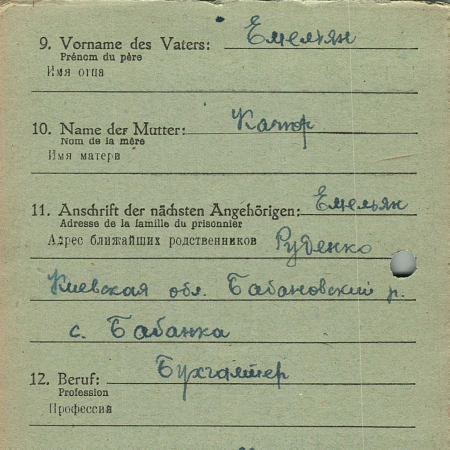 9. Vorname des Vaters: Емельян
Prénom du père
Имя отца
10. Name der Mutter: Качор
Nom de la mère
Имя матери
11. Anschrift der nächsten Angehörigen: Емельян
Adresse de la famille du prisonnier
Адрес ближайших родственников Руденко
Киевская обл. Бабановский р.
с. Бабанка
12. Beruf: Бухгалтер
Profession
Профессия